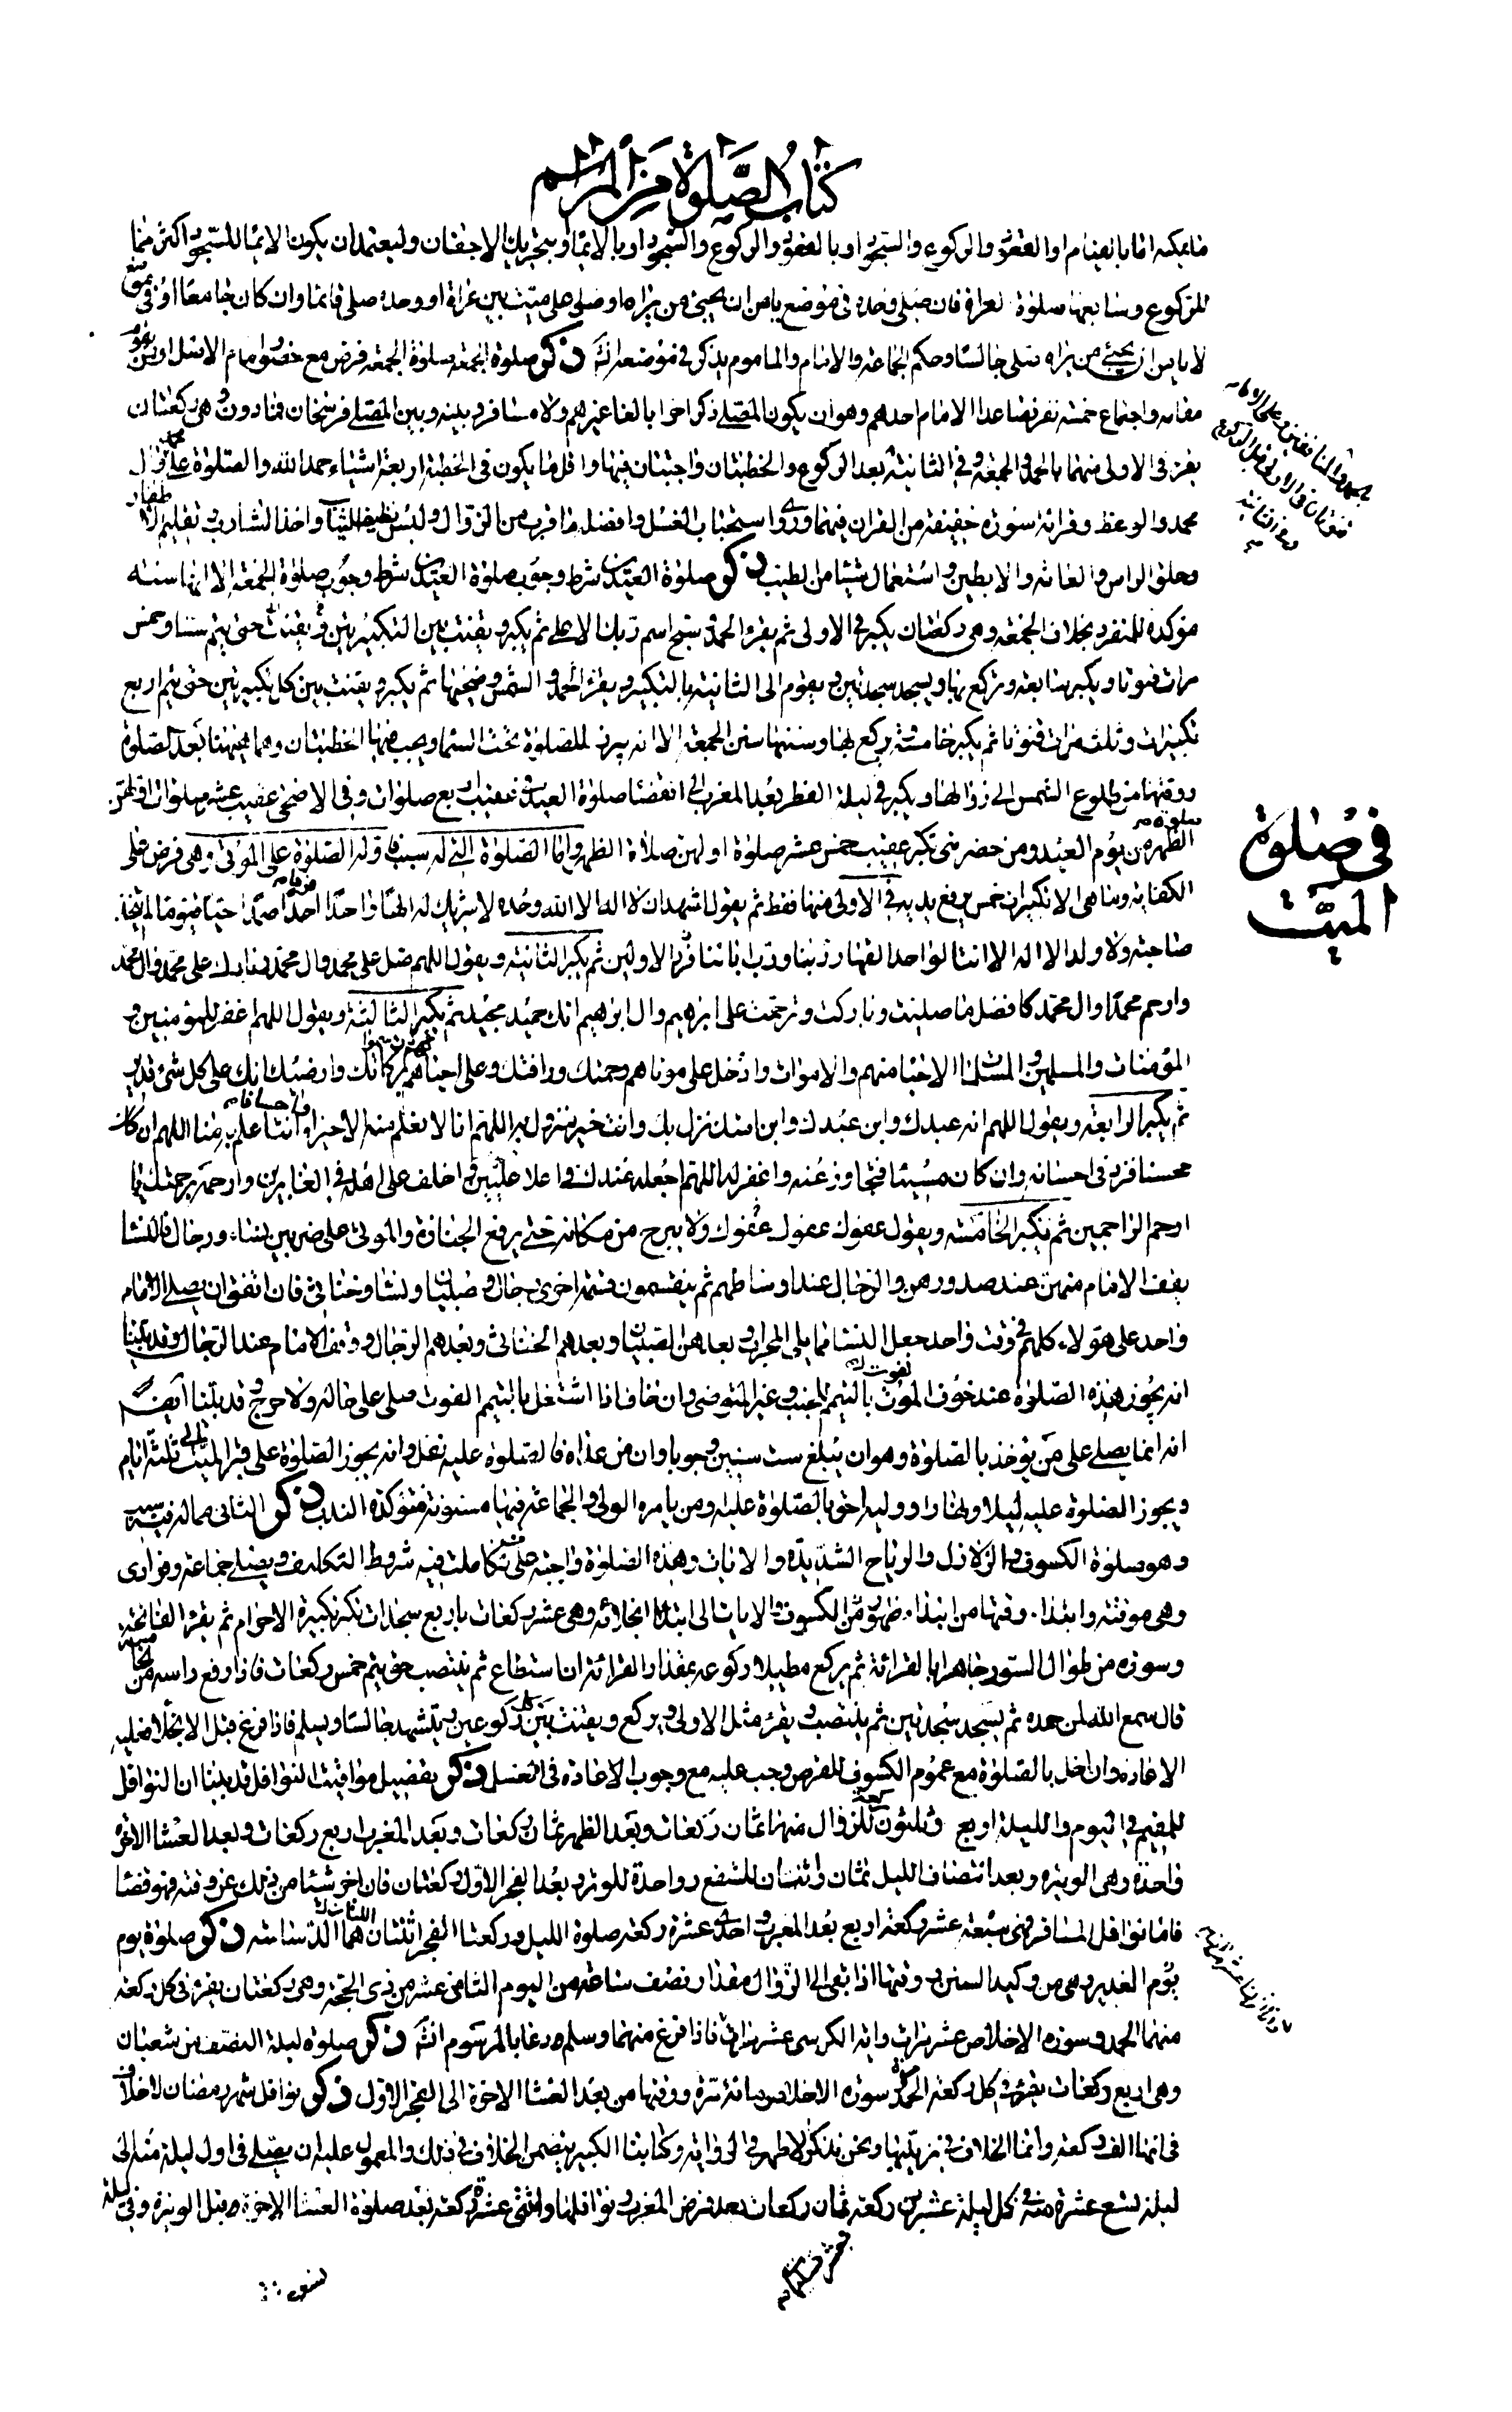 كتاب الصلوة من المراسم
ما يمكنه اما بالقيام او القعود والركوع والسجود او بالقعود والركوع والسجود او بالايماء او بتحريك الاجفان وليعتمد ان يكون الايماء للسجود اكثر منها
للركوع وسابعها صلوة العراة فان صلى وحده فى موضع يامن ان يجيئ من يراه او صلى على ميت بين عراة او وحده صلى قائما وان كان جامعا او فى
لا يامن ان يجيئ من يراه صلى جالسا وحكم الجماعة والامام والماموم يذكر فى موضعه انشاء الله ذكر صلوة الجمعة صلوة الجمعة فرض مع حضور امام الاصل او من يقوم
مقامه واجتماع خمسة نفر فصاعدا الامام احدهم وهو ان يكون المصلى ذكرا حرا بالغا غير هم ولا مسافر وبينه وبين المصلى فرسخان فما دون وهى ركعتان
يقرء فى الاولى منهما بالحمد والجمعة وفى الثانية بعد الركوع والخطبتان واجبتان فيها واقل ما يكون فى الخطبة اربعة اشياء حمد الله والصلوة على محمد وال
محمد والوعظ وقرائة سورة خفيفة من القران فيهما وروى استحباب الغسل وافضله ما قرب من الزوال ولبس نظيف الثياب واخذ الشارب وتقليم الاظفار
وحلق الراس والعانة والابطين واستعمال شيئا من الطيب ذكر صلوة العيدين شرط وجوب صلوة العيدين شرط وجوب صلوة الجمعة الا انها سنة
مؤكدة للمنفرد بخلاف الجمعة وهى ركعتان يكبر فى الاولى ثم يقرء الحمد وسبح اسم ربك الاعلى ثم يكبر ويقنت بين التكبيرتين ويقنت حتى يتم ستا وخمس
مرات قنوتا ويكبر سابعة ويركع بها ويسجد سجدتين ويقوم الى الثانية بالتكبير ويقرء الحمد والشمس وضحيها ثم يكبر ويقنت بين كل تكبيرتين حتى يتم اربع
تكبيرات وثلث مرات قنوتا ثم يكبر خامسة يركع بها وسننها سنن الجمعة الا انه يبرز للصلوة تحت السماء ويجب فيها الخطبتان وهما فيهما بعد الصلوة
ووقتها من طلوع الشمس الى زوالها ويكبر فى ليلة الفطر بعد المغرب الى انقضاء صلوة العيد وعقيب اربع صلوات وفى الاضحى عقيب عشر صلوات اولهن
الظهر من يوم العيد ومن حضر منى تكبر عقيب خمس عشر صلوة اولهن صلاة الظهر واما الصلوة التى له سبب فاوله الصلوة على الموتى وهى فرض على
الكفاية وما هى الا تكبيرات خمس يرفع يديه فى الاولى منها فقط ثم يقول اشهد ان لا اله الا الله وحده لا شريك له الها واحدا احدا صمدا حيا قيوما لم يتخذ
صاحبة ولا ولدا لا اله الا انت الواحد القهار ربنا ورب ابائنا الاولين ثم يكبر الثانية ويقول اللهم صل على محمد وال محمد وبارك على محمد وال محمد
وارحم محمدا وال محمد كافضل ما صليت وباركت وترحمت على ابرهيم وال ابرهيم انك حميد مجيد ثم يكبر الثالثة ويقول اللهم اغفر للمؤمنين و
المؤمنات والمسلمين والمسلمات الاحياء منهم والاموات وادخل على موتاهم رحمتك ورافتك وعلى احيائهم بركاتك وارضك انك على كل شئ قدير
ثم يكبر الرابعة ويقول اللهم انه عبدك وابن عبدك وابن امتك نزل بك وانت خير منزول به اللهم انا لا نعلم منه الا خيرا وانت اعلم به منا اللهم ان كان
محسنا فزد فى احسانه وان كان مسيئا فتجاوز عنه واغفر له اللهم اجعله عندك فى اعلا عليين واخلف على اهله فى الغابرين وارحمه برحمتك يا
ارحم الراحمين ثم يكبر الخامسة ويقول عفوك عفوك عفوك ولا يبرح من مكانه حتى يرفع الجنازة والموتى على ضربين نساء ورجال فالنساء
يقف الامام منهن عند صدورهن والرجال عند اوساطهم ثم ينقسمون قسمة اخرى رجال وصبيان ونساء وخناثى فان اتفق ان يصلى الامام
واحد على هؤلاء كلهم فى وقت واحد جعل النساء مما يلى المحراب وبعدهن الصبيان وبعدهم الخناثى وبعدهم الرجال ووقف الامام عند الرجال وقد بينا
انه يجوز هذه الصلوة عند خوف الموت بالتيمم للجنب وغير المتوضى وان خاف اذا اشتغل بالتيمم الفوت صلى على حاله ولا حرج وقد بينا ايضا
انه انما يصلى على من يؤخذ بالصلوة وهو ان يبلغ ست سنين وجوبا وان من عداه فالصلوة عليه نفل وانه يجوز الصلوة على قبر الميت الى ثلثة ايام
ويجوز الصلوة عليه ليلا ونهارا ووليه احق بالصلوة عليه ومن يامره الولى والجماعة فيها مسنونة مؤكدة الندب ذكر الثانى مما له فيه سبب
وهو صلوة الكسوف والزلازل والرياح الشديدة والايات وهذه الصلوة واجبة على من تكاملت فيه شروط التكليف ويصلى جماعة وفرادى
وهى موقتة وابتداء وقتها من ابتداء ظهور الكسوف والايات الى ابتداء انجلائه وهى عشر ركعات باربع سجدات يكبر تكبيرة الاحرام ثم يقرء الفاتحة
وسورة من طوال السور جاهرا بالقرائة ثم يركع مطيلا ركوعه بمقدار القرائة ان استطاع ثم ينتصب حتى يتم خمس ركعات فاذا رفع راسه من الخامسة
قال سمع الله لمن حمده ثم يسجد سجدتين ثم ينتصب ويقرء مثل الاولى ويركع ويقنت بين كل ركوعين ويتشهد جالسا ويسلم فاذا فرغ قبل الانجلاء فعليه
الاعادة وان اخل بالصلوة مع عموم الكسوف للقرص وجب عليه مع وجوب الاعادة فى الغسل ذكر تفصيل مواقيت النوافل قد بينا ان النوافل
للمقيم فى اليوم والليلة اربع وثلثون ركعة للزوال منها ثمان ركعات وبعد الظهر ثمان ركعات وبعد المغرب اربع ركعات وبعد العشاء الاخرة
واحدة وهى الوتيرة وبعد انتصاف الليل ثمان واثنتان للشفع وواحدة للوتر وبعد الفجر الاول ركعتان فان اخر شيئا من ذلك عن وقته فهو قضاء
فاما نوافل المسافر فهى سبعة عشر ركعة اربع بعد المغرب واحدى عشرة ركعة صلوة الليل وركعتا الفجر اثنتان هما الدساسة ذكر صلوة يوم
يوم الغدير وهى من وكيد السنن ووقتها اذا بقى الى الزوال مقدار نصف ساعة من اليوم الثامن عشر من ذى الحجة وهى ركعتان يقرء فى كل ركعة
منهما الحمد وسورة الاخلاص عشر مرات واية الكرسى عشر مرات فاذا فرغ منهما وسلم دعا بالمرسوم انشاء الله ذكر صلوة ليلة النصف من شعبان
وهى اربع ركعات يقرء فى كل ركعة الحمد مرة وسورة الاخلاص مائة مرة ووقتها من بعد العشاء الاخرة الى الفجر الاول ذكر نوافل شهر رمضان لا خلاف
فى انها الف ركعة وانما الخلاف فى ترتيبها ونحن نذكر الاظهر فى الرواية وكتابنا الكبير يتضمن الخلاف فى ذلك والمعمول عليه ان يصلى فى اول ليلة منه الى
ليلة تسع عشرة منه فى كل ليلة عشرين ركعة ثمان ركعات بعد فرض المغرب ونوافلها واثنتى عشرة ركعة بعد صلوة العشاء الاخرة قبل الوتيرة وفى ليلة
فى صلوة
الميت